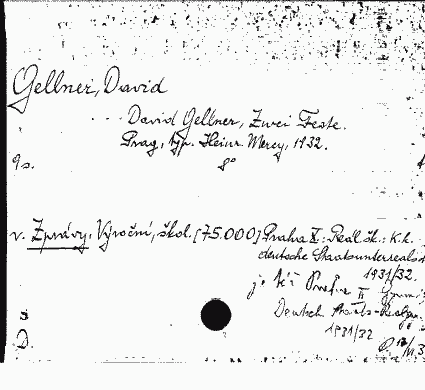 Gellner, David
David Gellner, Zwei Feste.
Prag, typ. Heinr. Mercy, 1932.
9 s. 8°
v. Zprávy. Výroční, škol. [75.000] Praha X: Reál. šk.: K.k.
deutsche Staatsunterreals
1931/32.
je též Praha II
Deutsch. Staats-Realgym.
1931/32
D.